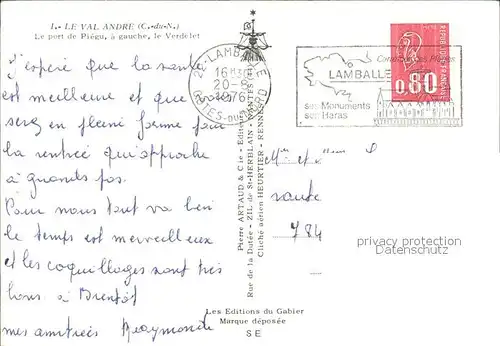 1.- LE VAL ANDRE (C.-du-N.)
Le port de Piégu, à gauche, le Verdelet
J'espère que la santé
est meilleure et que vous
serez en pleine forme pour
la rentrée qui approche
à grands pas.
Pour nous tout va bien
le temps est merveilleux
et les coquillages sont très
bons à Bientôt
mes amitiés Raymonde
22 - LAMBALLE
16H30
20-8
1976
COTES-DU-NORD
Pierre ARTAUD & Cie - Editeurs
Rue de la Dutée - ZIL de St-HERBLAIN - NANTES
Cliché aérien HEURTIER - RENNES
Les Editions du Gabier
Marque déposée
SE
LAMBALLE
ses Monuments
son Haras
0,80
REPUBLIQUE FRANÇAISE
Mr et Mme S
route
784
privacy protection
Datenschutz